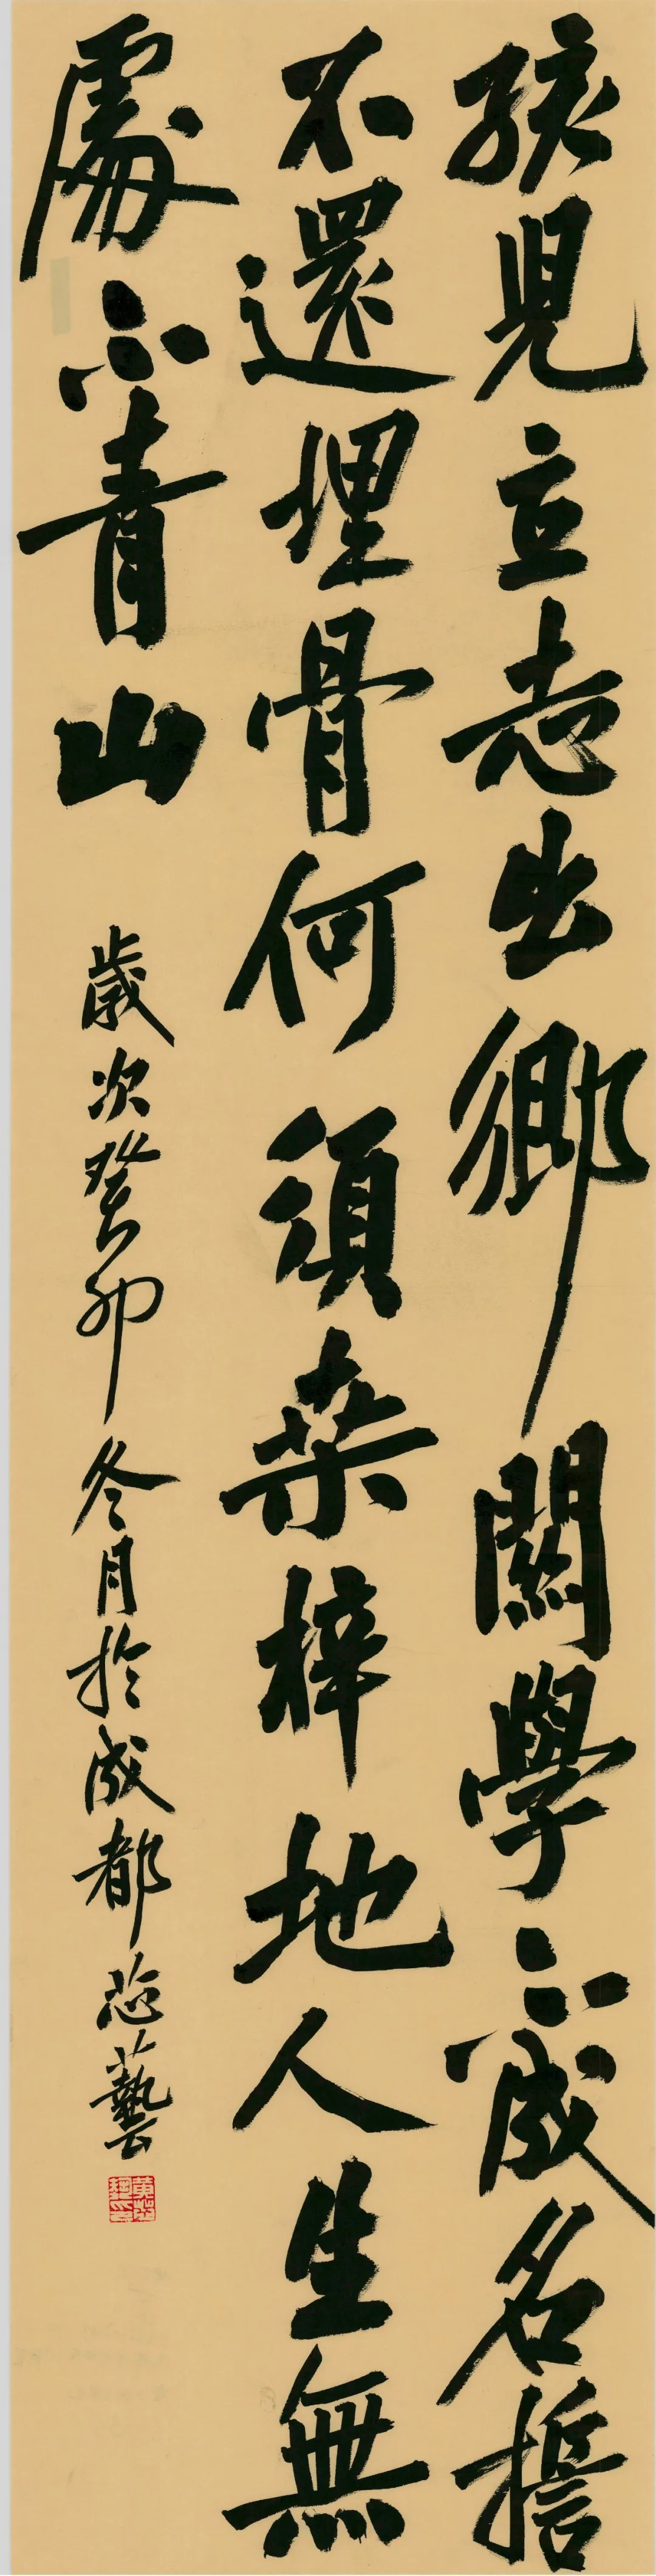 孩兒立志出鄉關學不成名誓
不還埋骨何須桑梓地人生無
處不青山
歲次癸卯冬月於成都芯藝